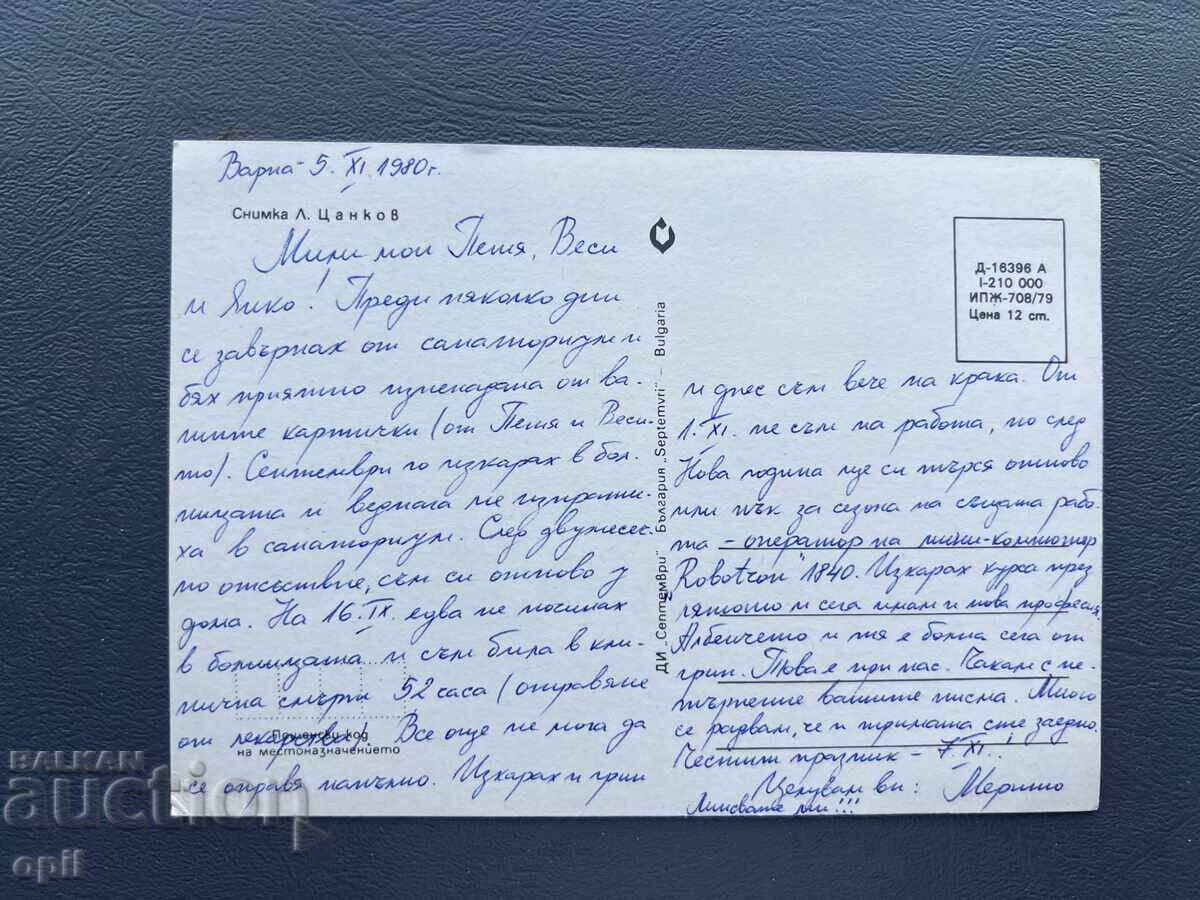 Варна - 5.XI.1980г.
Снимка Л. Цанков
Мили мои Петя, Веси
и Янко! Преди няколко дни
се завърнах от санаториум и
бях приятно изненадана от ва-
шите картички (от Петя и Веси-
то). Септември го изкарах в бол-
ницата и веднага ме изпрати-
ха в санаториум. След двумесеч-
но отсъствие, съм си отново у
дома. На 16.IX. едва не починах
в болницата и съм била в кли-
нична смърт 52 часа (отравяне
от лекарство). Все още не мога да
се оправя напълно. Изкарах и грип
Пощенски код
на местоназначението
ДИ „Септември" България „Septemvri" – Bulgaria
Д-16396 А
I-210 000
ИПЖ-708/79
Цена 12 ст.
и днес съм вече на крака. От
1.XI. не съм на работа, но след
Нова година ще си търся отново
или пък за сезона на същата рабо-
та - оператор на мини-компютър
"Robotron" 1840. Изкарах курса през
лятото и сега имам и нова професия
Албенчето и тя е болна сега от
грип. Това е при нас. Чакам с не-
търпение вашите писма. Много
се радвам, че и тримата сте заедно.
Честит празник - 7.XI.!
Целувам ви:
Липсвате ми!!!
BALKAN
auction
opil